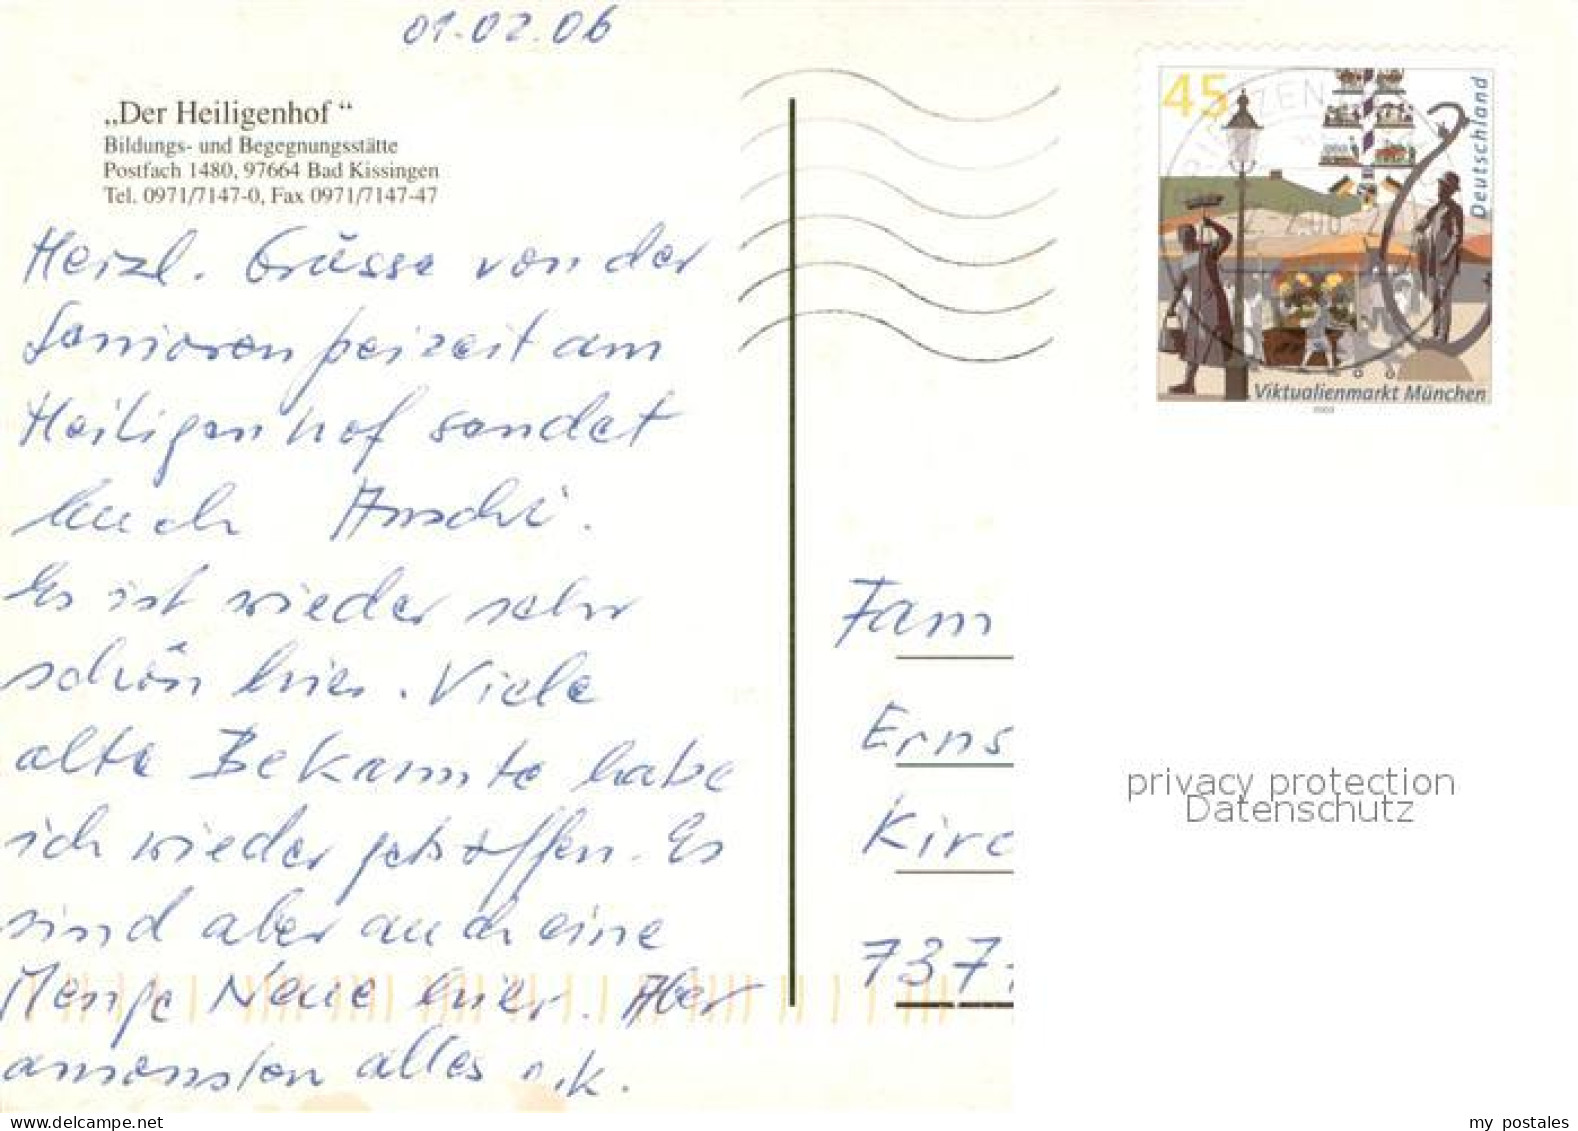 01.02.06
„Der Heiligenhof “
Bildungs- und Begegnungsstätte
Postfach 1480, 97664 Bad Kissingen
Tel. 0971/7147-0, Fax 0971/7147-47
Herzl. Grüsse von der
Seniorenfreizeit am
Heiligenhof sendet
Euch Anschi.
Es ist wieder sehr
schön hier. Viele
alte Bekannte habe
ich wieder getroffen. Es
sind aber auch eine
Menge Neue hier. Aber
ansonsten alles o.k.
45
Deutschland
Viktualienmarkt München
2003
Fam
Erns
Kirc
737
privacy protection
Datenschutz
www.delcampe.net
my_postales